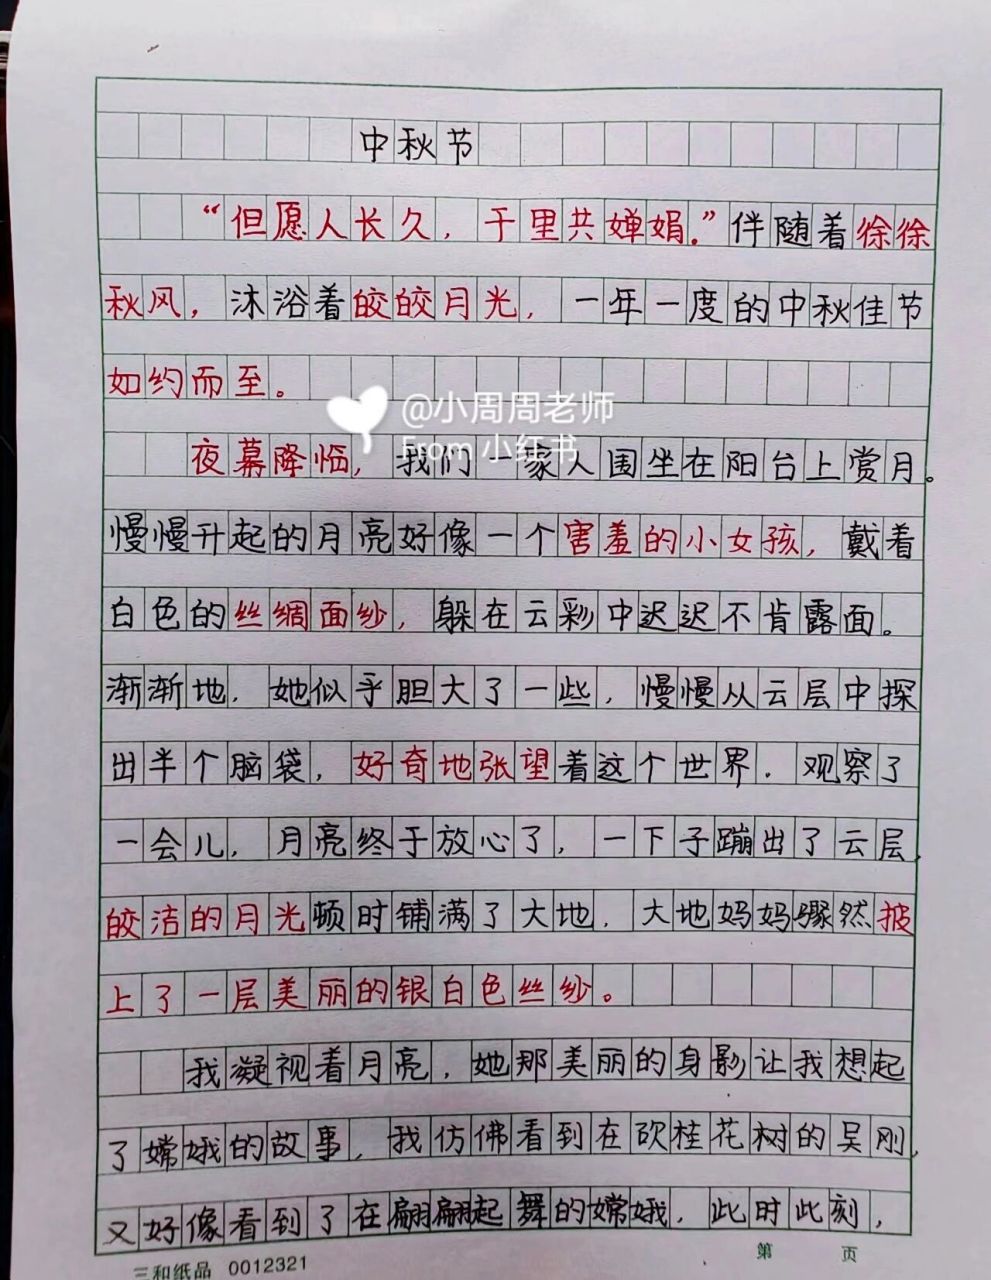 中秋节
“但愿人长久，千里共婵娟。”伴随着徐徐
秋风，沐浴着皎皎月光，一年一度的中秋佳节
如约而至。
@小周周老师
From 小红书
夜幕降临，我们一家人围坐在阳台上赏月。
慢慢升起的月亮好像一个害羞的小女孩，戴着
白色的丝绸面纱，躲在云彩中迟迟不肯露面。
渐渐地，她似乎胆大了一些，慢慢从云层中探
出半个脑袋，好奇地张望着这个世界．观察了
一会儿，月亮终于放心了，一下子蹦出了云层，
皎洁的月光顿时铺满了大地．大地妈妈骤然披
上了一层美丽的银白色丝纱。
我凝视着月亮，她那美丽的身影让我想起
了嫦娥的故事，我仿佛看到在砍桂花树的吴刚，
又好像看到了在翩翩起舞的嫦娥．此时此刻，
三和纸品 0012321
第 页